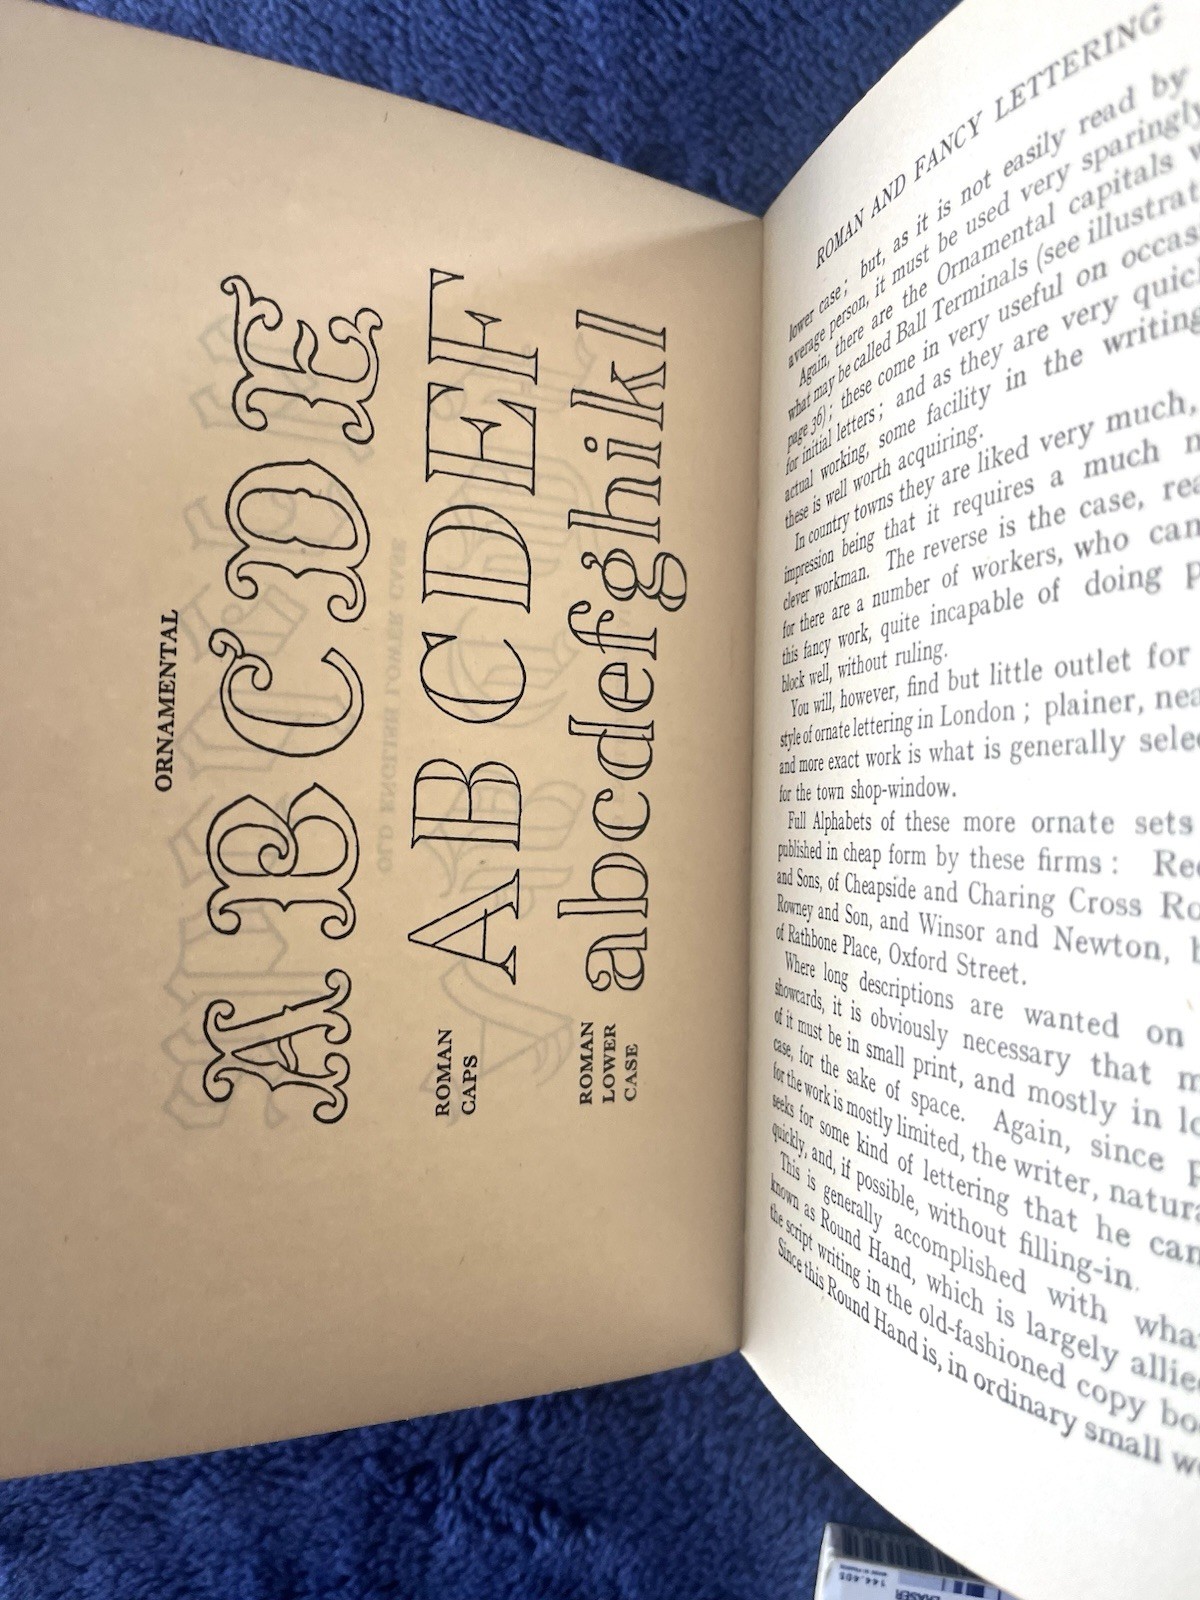 ORNAMENTAL
A B C D E
ROMAN
CAPS
A B C D E F
ROMAN
LOWER
CASE
abcdefghikl
OLD ENGLISH LOWER CASE
ROMAN AND FANCY LETTERING
lower case; but, as it is not easily read by
average person, it must be used very sparingly
Again, there are the Ornamental capitals
what may be called Ball Terminals (see
page 36); these come in very useful on
for initial letters; and as they are very
actual working, some facility in the writing
these is well worth acquiring.
In country towns they are liked very much,
impression being that it requires a much
clever workman. The reverse is the case,
for there are a number of workers, who can
this fancy work, quite incapable of doing
block well, without ruling.
You will, however, find but little outlet for
style of ornate lettering in London; plainer,
and more exact work is what is generally
for the town shop-window.
Full Alphabets of these more ornate sets
published in cheap form by these firms:
and Sons, of Cheapside and Charing Cross
Rowney and Son, and Winsor and Newton,
of Rathbone Place, Oxford Street.
Where long descriptions are wanted on
showcards, it is obviously necessary that
of it must be in small print, and mostly in
case, for the sake of space. Again, since
for the work is mostly limited, the writer,
seeks for some kind of lettering that he can
quickly, and, if possible, without filling-in.
This is generally accomplished with
known as Round Hand, which is largely
the script writing in the old-fashioned copy
Since this Round Hand is, in ordinary small
144.405
ERASER